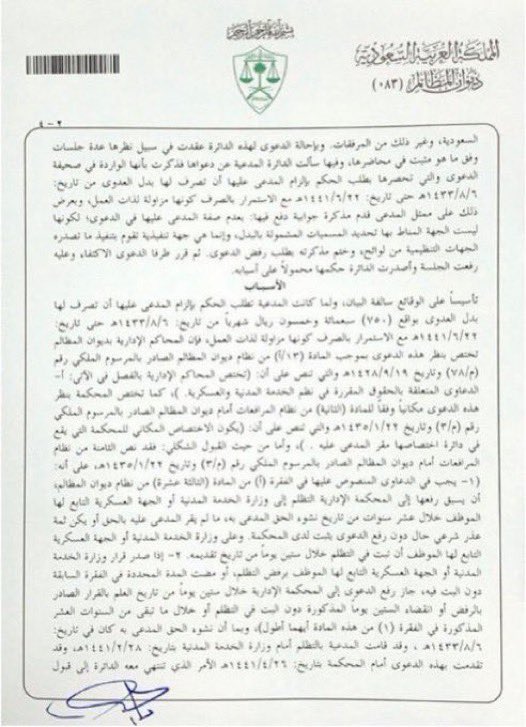 بسم الله الرحمن الرحيم
المملكة العربية السعودية
ديوان المظالم (٠٨٣)
٢-٤
السعودية، وغير ذلك من المرفقات. وبإحالة الدعوى لهذه الدائرة عقدت في سبيل نظرها عدة جلسات
وفق ما هو مثبت في محاضرها، وفيها سألت الدائرة المدعية عن دعواها فذكرت بأنها الواردة في صحيفة
الدعوى والتي تنحصرها بطلب الحكم بإلزام المدعى عليها أن تصرف لها بدل العدوى من تاريخ:
١٤٣٣/٨/٦هـ حتى تاريخ: ١٤٤١/٦/٢٢هـ مع الاستمرار بالصرف كونها مزاولة لذات العمل، وبعرض
ذلك على ممثل المدعى قدم مذكرة جوابية دفع فيها: بعدم صفة المدعى عليها في الدعوى؛ لكونها
ليست الجهة المناط بها تحديد المسميات المشمولة بالبدل، وإنما هي جهة تنفيذية تقوم بتنفيذ ما تصدره
الجهات التنظيمية من لوائح، وختم مذكرته بطلب رفض الدعوى. ثم قرر طرفا الدعوى الاكتفاء، وعليه
رفعت الجلسة وأصدرت الدائرة حكمها محمولاً على أسبابه.
الأسباب
تأسيساً على الوقائع سالفة البيان، ولما كانت المدعية تطلب الحكم بإلزام المدعى عليها أن تصرف لها
بدل العدوى بواقع (٧٥٠) سبعمائة وخمسون ريال شهرياً من تاريخ: ١٤٣٣/٨/٦هـ حتى تاريخ:
١٤٤١/٦/٢٢هـ مع الاستمرار بالصرف كونها مزاولة لذات العمل، فإن المحاكم الإدارية بديوان المظالم
تختص بنظر هذه الدعوى بموجب المادة (١٣/أ) من نظام ديوان المظالم الصادر بالمرسوم الملكي رقم
(م/٧٨) وتاريخ ١٤٢٨/٩/١٩هـ والتي تنص على أن: (تختص المحاكم الإدارية بالفصل في الآتي: أ-
الدعاوى المتعلقة بالحقوق المقررة في نظم الخدمة المدنية والعسكرية. )، كما تختص المحكمة بنظر
هذه الدعوى مكانياً وفقاً للمادة (الثانية) من نظام المرافعات أمام ديوان المظالم الصادر بالمرسوم الملكي
رقم (م/٣) وتاريخ ١٤٣٥/١/٢٢هـ والتي تنص على أن: (يكون الاختصاص المكاني للمحكمة التي يقع
في دائرة اختصاصها مقر المدعى عليه . )، وأما من حيث القبول الشكلي: فقد نص الثامنة من نظام
المرافعات أمام ديوان المظالم الصادر بالمرسوم الملكي رقم (م/٣) وتاريخ ١٤٣٥/١/٢٢هـ، على أنه:
(١- يجب في الدعاوى المنصوص عليها في الفقرة (أ) من المادة (الثالثة عشرة) من نظام ديوان المظالم،
أن يسبق رفعها إلى المحكمة الإدارية التظلم إلى وزارة الخدمة المدنية أو الجهة العسكرية التابع لها
الموظف خلال عشر سنوات من تاريخ نشوء الحق المدعى به، ما لم يقر المدعى عليه بالحق أو يكن ثمة
عذر شرعي حال دون رفع الدعوى يثبت لدى المحكمة. وعلى وزارة الخدمة المدنية أو الجهة العسكرية
التابع لها الموظف أن تبت في التظلم خلال ستين يوماً من تاريخ تقديمه. ٢- إذا صدر قرار وزارة الخدمة
المدنية أو الجهة العسكرية التابع لها الموظف برفض التظلم، أو مضت المدة المحددة في الفقرة السابقة
دون البت فيه، جاز رفع الدعوى إلى المحكمة الإدارية خلال ستين يوما من تاريخ العلم بالقرار الصادر
بالرفض أو انقضاء الستين يوما المذكورة دون البت في التظلم أو خلال ما تبقى من السنوات العشر
المذكورة في الفقرة (١) من هذه المادة أيهما أطول)، وبما أن نشوء الحق المدعى به كان في تاريخ:
١٤٣٣/٨/٦هـ ، وقد قامت المدعية بالتظلم أمام الخدمة المدنية بتاريخ: ١٤٤١/٢/٢٨هـ، وقد
تقدمت بهذه الدعوى أمام المحكمة بتاريخ: ١٤٤١/٤/٢٦هـ الأمر الذي تنتهي معه الدائرة إلى قبول